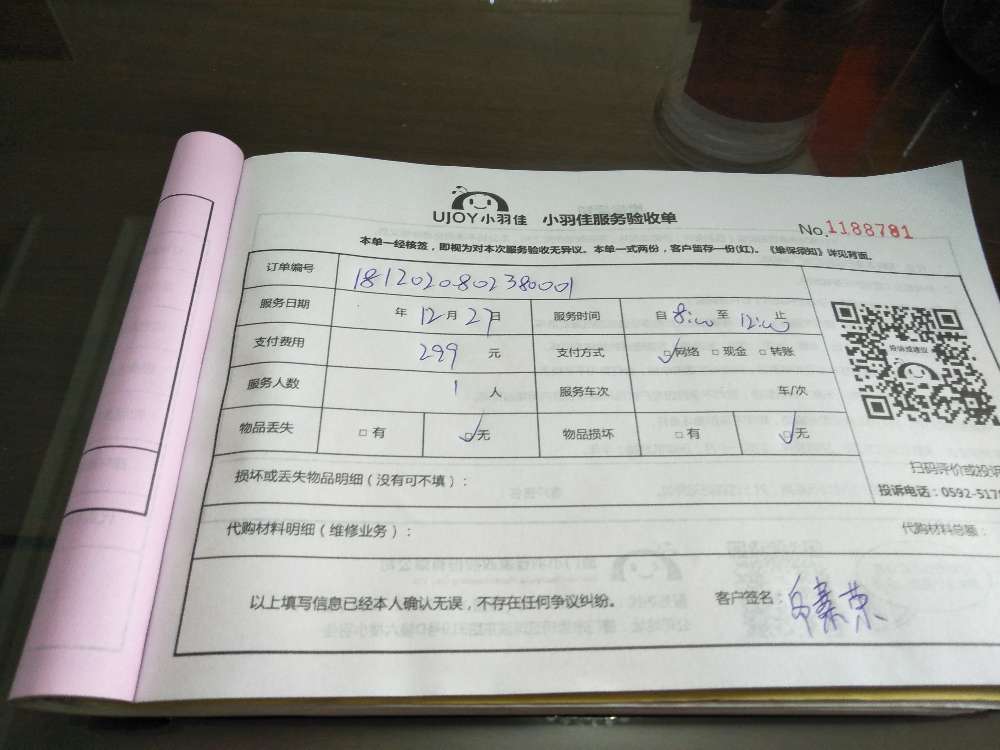 UJOY小羽佳 小羽佳服务验收单
No.1188781
本单一经核签，即视为对本次服务验收无异议。本单一式两份，客户留存一份(红)。《维保须知》详见背面。
订单编号 1812020802380001
服务日期 年 12月 27日 服务时间 自 8:00 至 12:00 止
支付费用 299 元 支付方式 □网络 □现金 □转账
投诉或建议
服务人数 1 人 服务车次 车/次
物品丢失 □有 □无 物品损坏 □有 □无
扫码评价或投诉
损坏或丢失物品明细（没有可不填）：
投诉电话：0592-517
代购材料明细（维修业务）： 代购材料总额：
以上填写信息已经本人确认无误，不存在任何争议纠纷。 客户签名：